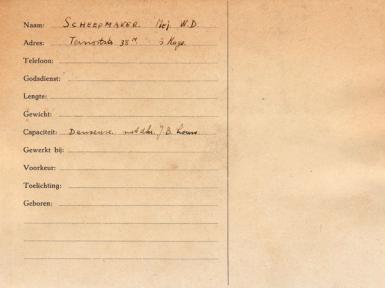 Naam: SCHEEPMAKER Mej. W.D.
Adres: 's Hage.
Telefoon:
Godsdienst:
Lengte:
Gewicht:
Capaciteit: Danseuse J.B.
Gewerkt bij:
Voorkeur:
Toelichting:
Geboren: